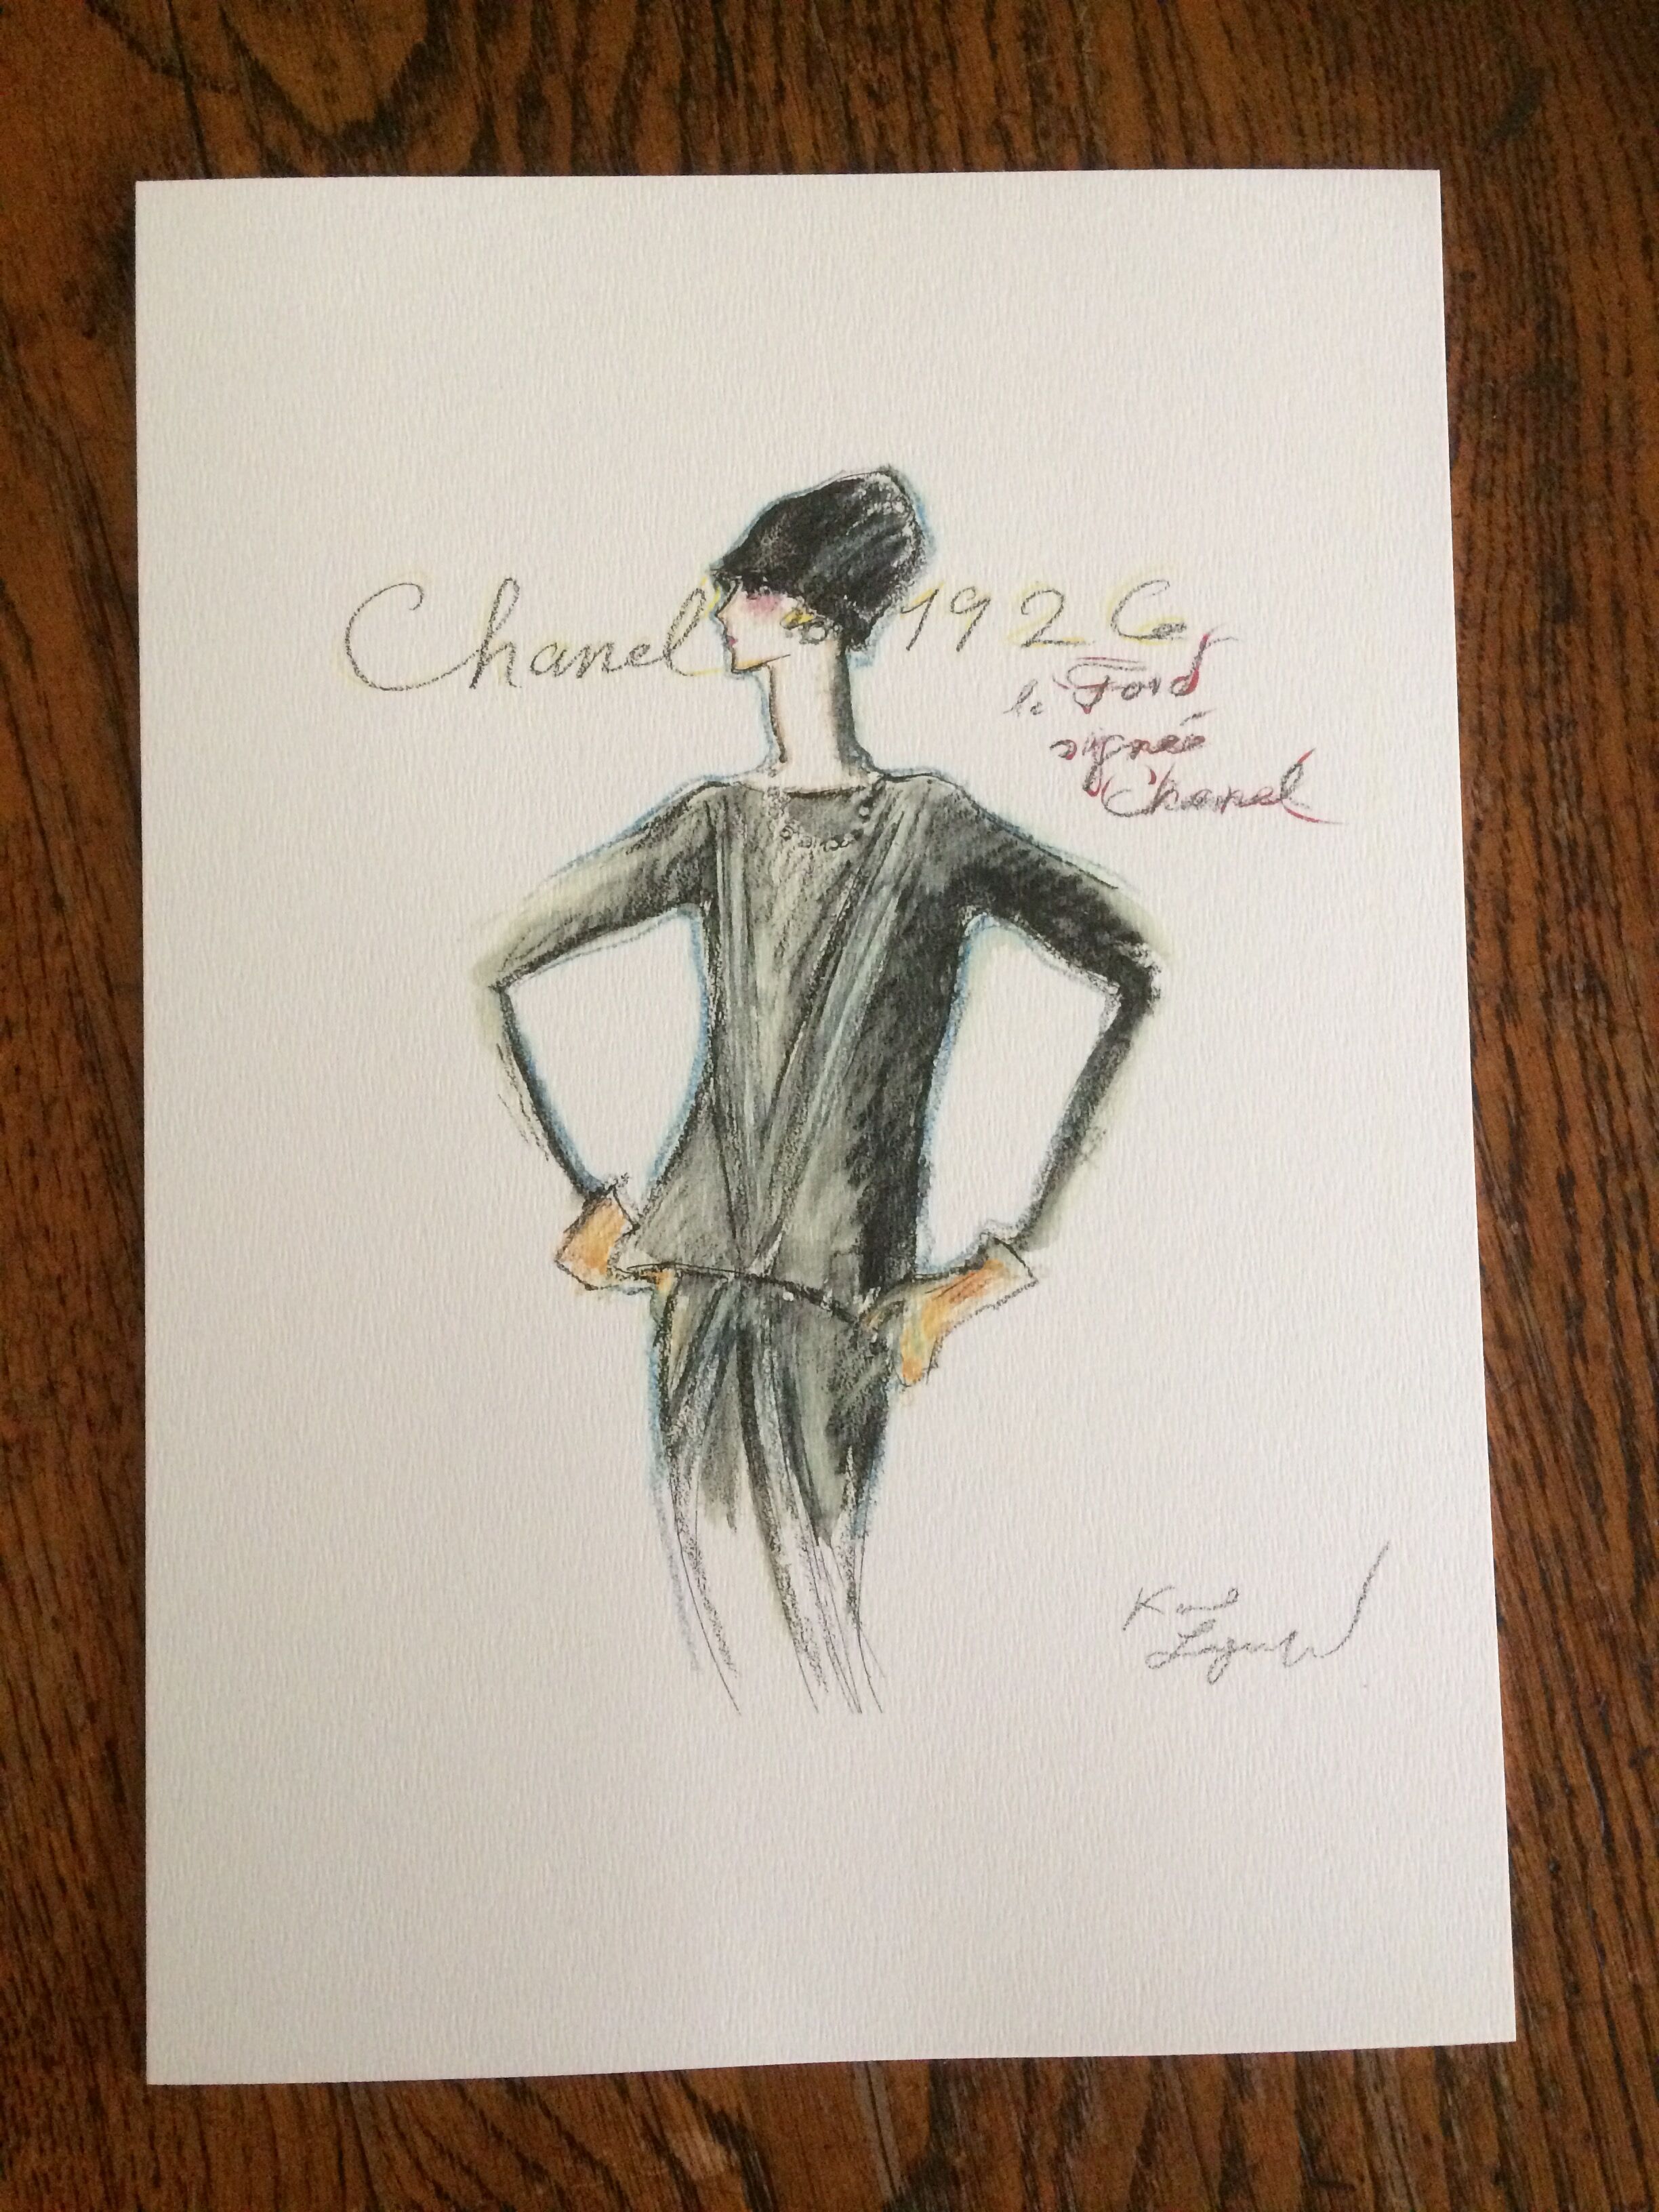 Chanel 1926
la Ford
signée
Chanel
Karl
Lagerfeld